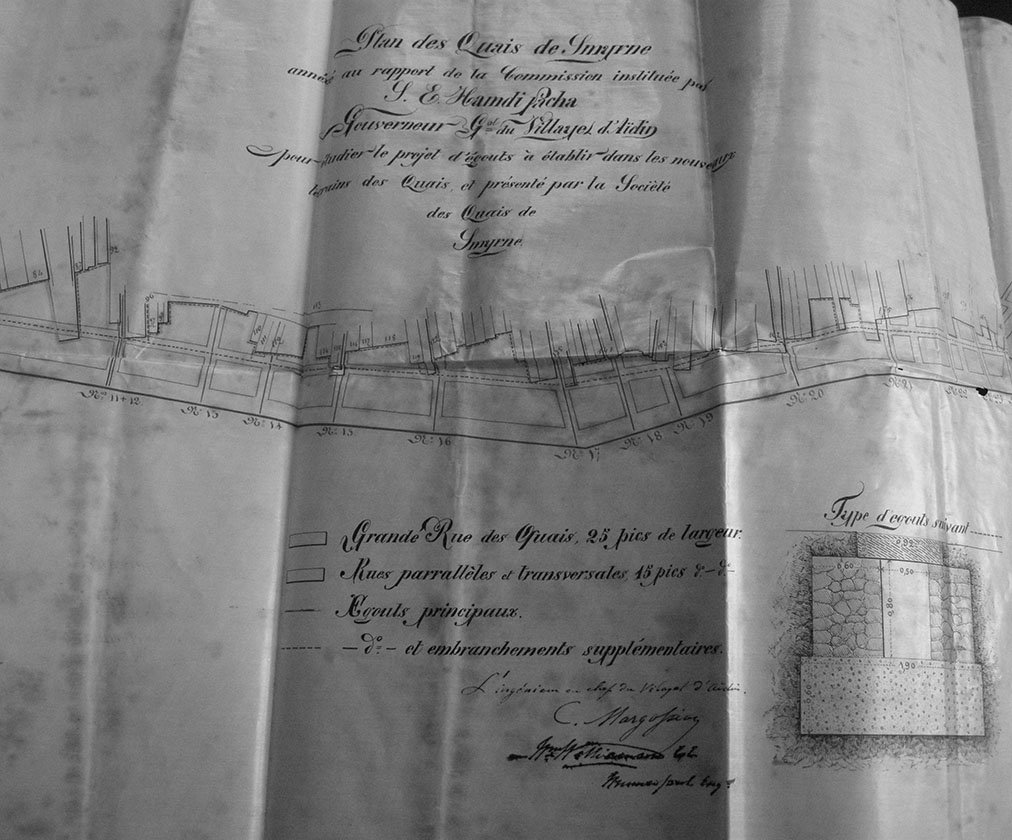 Plan des Quais de Smyrne
annéxé au rapport de la Commission instituée par
S. E. Hamdi Pacha
Gouverneur Gal du Villayet d'Aidin
pour étudier le projet d'égouts à établir dans les nouveaux
terrains des Quais, et présenté par la Société
des Quais de
Smyrne.
86
92
96
113
118
No 11+12
No 13
No 14
No 15
No 16
No 17
No 18
No 19
No 20
No 22
Grande Rue des Quais, 25 pics de largeur.
Rues parrallèles et transversales, 15 pics do – do
Egouts principaux.
– do – et embranchements supplémentaires.
L'ingénieur en chef du Vilayet d'Aidin.
Type d'egouts suivant
0,92
0,60
0,50
0,80
1,90